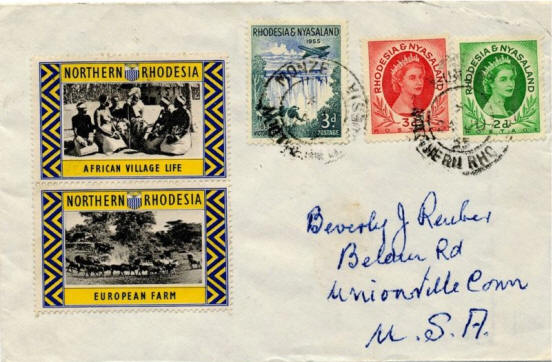 NORTHERN RHODESIA
AFRICAN VILLAGE LIFE
NORTHERN RHODESIA
EUROPEAN FARM
RHODESIA & NYASALAND
1955
3d
POSTAGE
RHODESIA & NYASALAND
3d
RHODESIA & NYASALAND
2d
MONZE
NORTHERN RHO
Beverly J Reuber
Belden Rd
Unionville Conn
U. S. A.